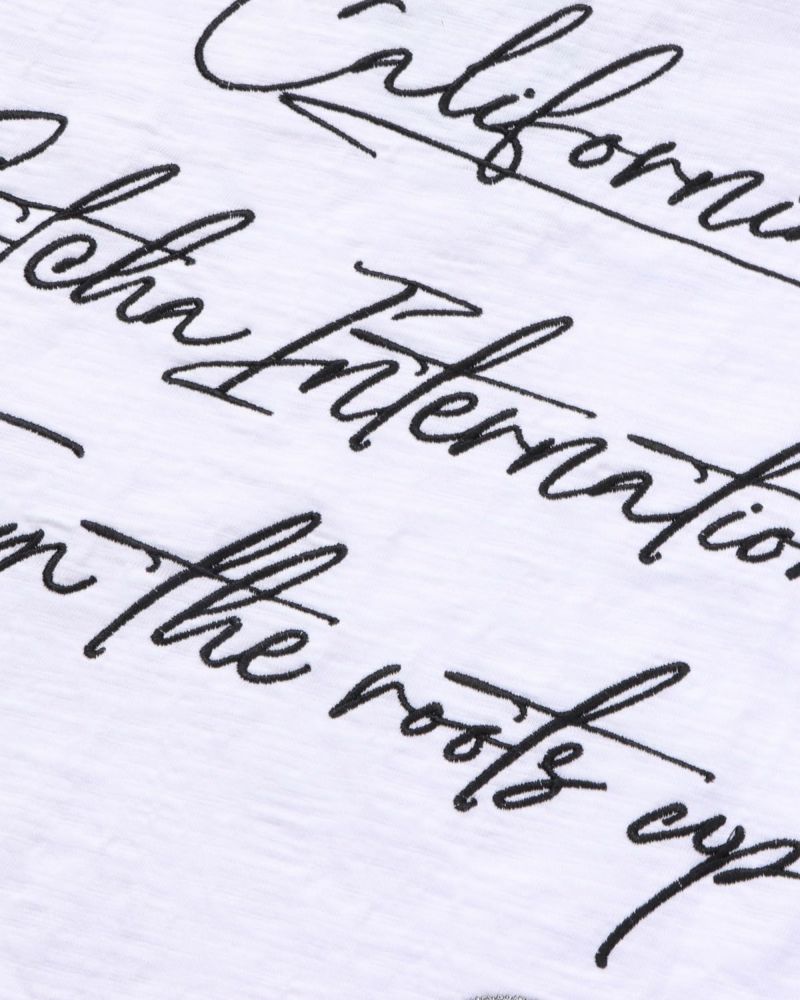 Californi
tcha Internation
n the roots cup